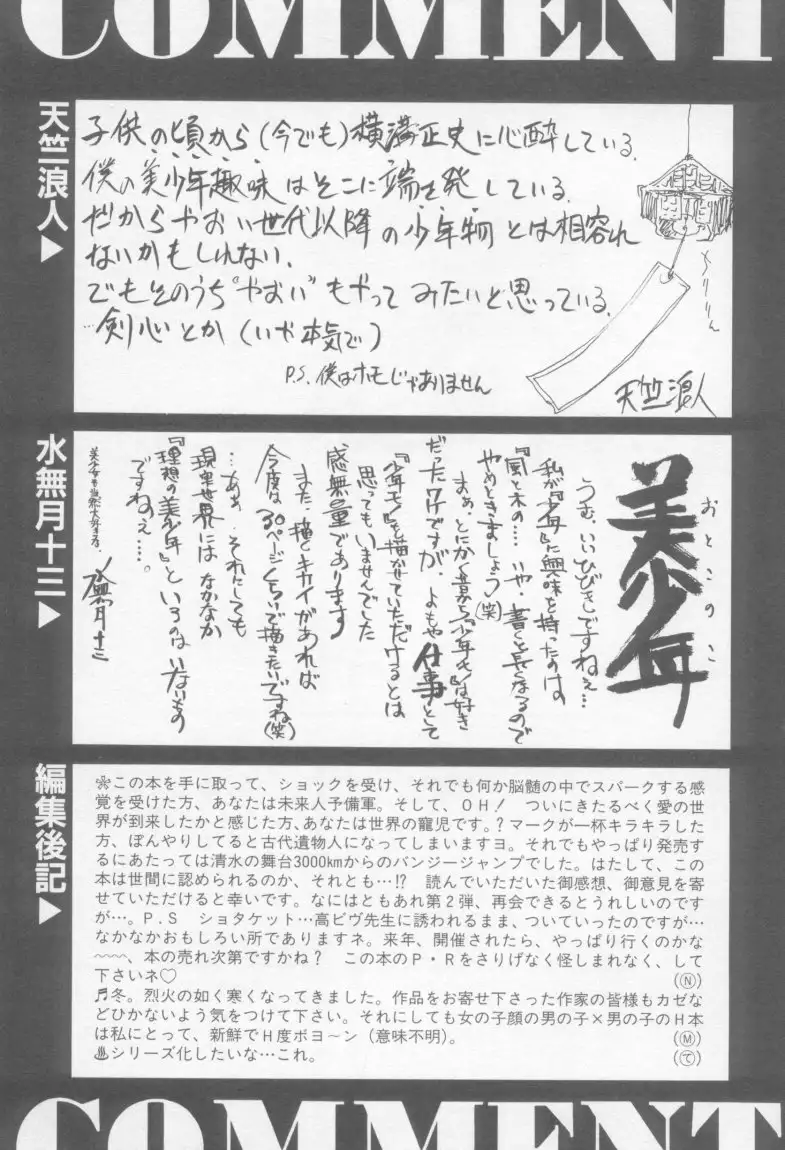 COMMENT
天竺浪人▶
子供の頃から(今でも)横溝正史に心酔している。
僕の美少年趣味はそこに端を発している。
だからやおい世代以降の少年物とは相容れ
ないかもしれない。
でもそのうち“やおい”もやってみたいと思っている。
…剣心とか(いや本気で)
P.S. 僕はホモじゃありません
ちりりりん
天竺浪人
水無月十三▶
美少年
おとこのこ
うむ、いいひびきですねえ…
私が『少年』に興味を持ったのは
『風と木の…いや、書くと長くなるので
やめときましょう(笑)
まぁ、とにかく昔から『少年モノ』は好き
だったワケですが、よもや仕事として
『少年モノ』を描かせていただけるとは
思ってもいませんでした
感無量であります
また、描くキカイがあれば
今度は30ページくらいで描きたいですね(笑)
…ああ、それにしても
現実世界にはなかなか
『理想の美少年』というのはいないもの
ですねぇ……。
美少女も当然大好きさ。
水無月十三
編集後記▶
❀この本を手に取って、ショックを受け、それでも何か脳髄の中でスパークする感
覚を受けた方、あなたは未来人予備軍。そして、OH! ついにきたるべく愛の世
界が到来したかと感じた方、あなたは世界の寵児です。?マークが一杯キラキラした
方、ぼんやりしてると古代遺物人になってしまいますヨ。それでもやっぱり発売す
るにあたっては清水の舞台3000kmからのバンジージャンプでした。はたして、この
本は世間に認められるのか、それとも…!? 読んでいただいた御感想、御意見を寄
せていただけると幸いです。なにはともあれ第2弾、再会できるとうれしいのです
が…。P.S ショタケット…高ビヴ先生に誘われるまま、ついていったのですが…
なかなかおもしろい所でありますネ。来年、開催されたら、やっぱり行くのかな
〜〜、本の売れ次第ですかね? この本のP・Rをさりげなく怪しまれなく、して
下さいネ♡ (Ⓝ)
♬冬。烈火の如く寒くなってきました。作品をお寄せ下さった作家の皆様もカゼな
どひかないよう気をつけて下さい。それにしても女の子顔の男の子×男の子のH本
は私にとって、新鮮でH度ボヨ〜ン(意味不明)。 (Ⓜ)
♨シリーズ化したいな…これ。 (て)
COMMENT